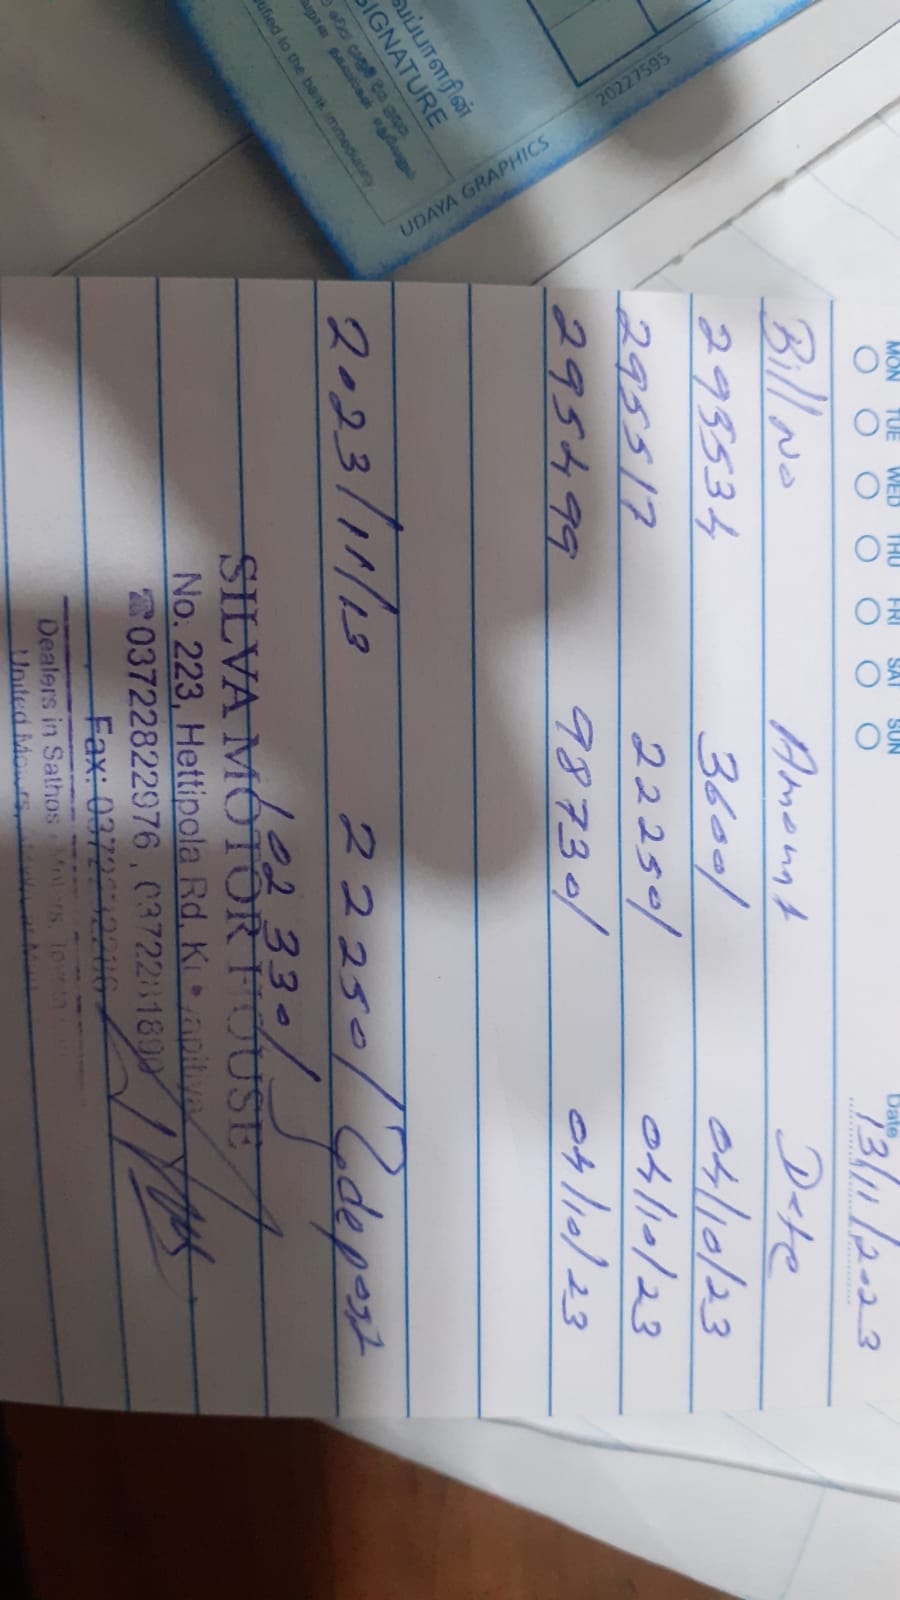 வைப்பாளரின்
SIGNATURE
notified to the bank immediately
UDAYA GRAPHICS
20227595
MON TUE WED THU FRI SAT SUN
Date 13/11/2023
Bill No Amount Date
295534 3600/ 04/10/23
295517 22250/ 04/10/23
295499 98730/ 04/10/23
2023/11/13 22250/ deposit
102330/
SILVA MOTOR HOUSE
No. 223, Hettipola Rd,
☎03722822976,
Fax:
Dealers in Sathos
United Motors,